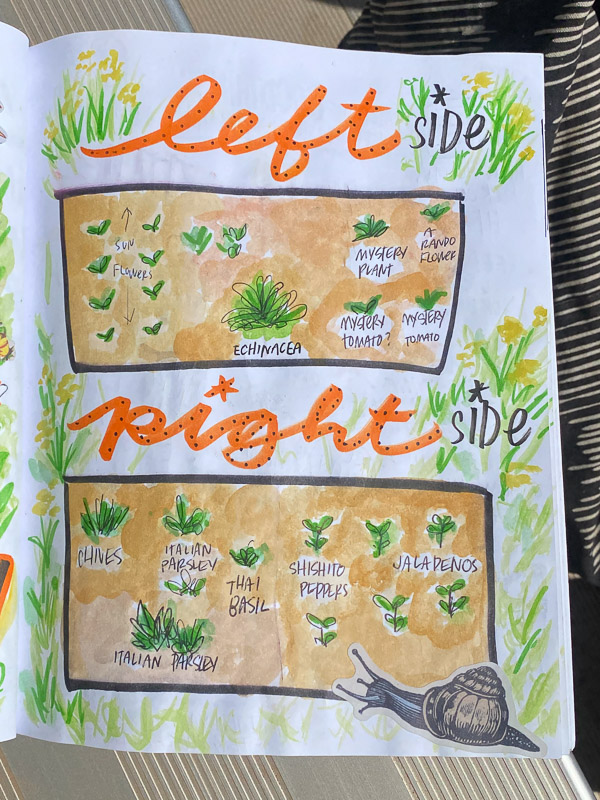 left *SIDE
SUN
FLOWERS
MYSTERY
PLANT
A
RANDO
FLOWER
ECHINACEA
MYSTERY
TOMATO?
MYSTERY
TOMATO
Right *SIDE
CHIVES
ITALIAN
PARSLEY
THAI
BASIL
SHISHITO
PEPPERS
JALAPENOS
ITALIAN PARSLEY